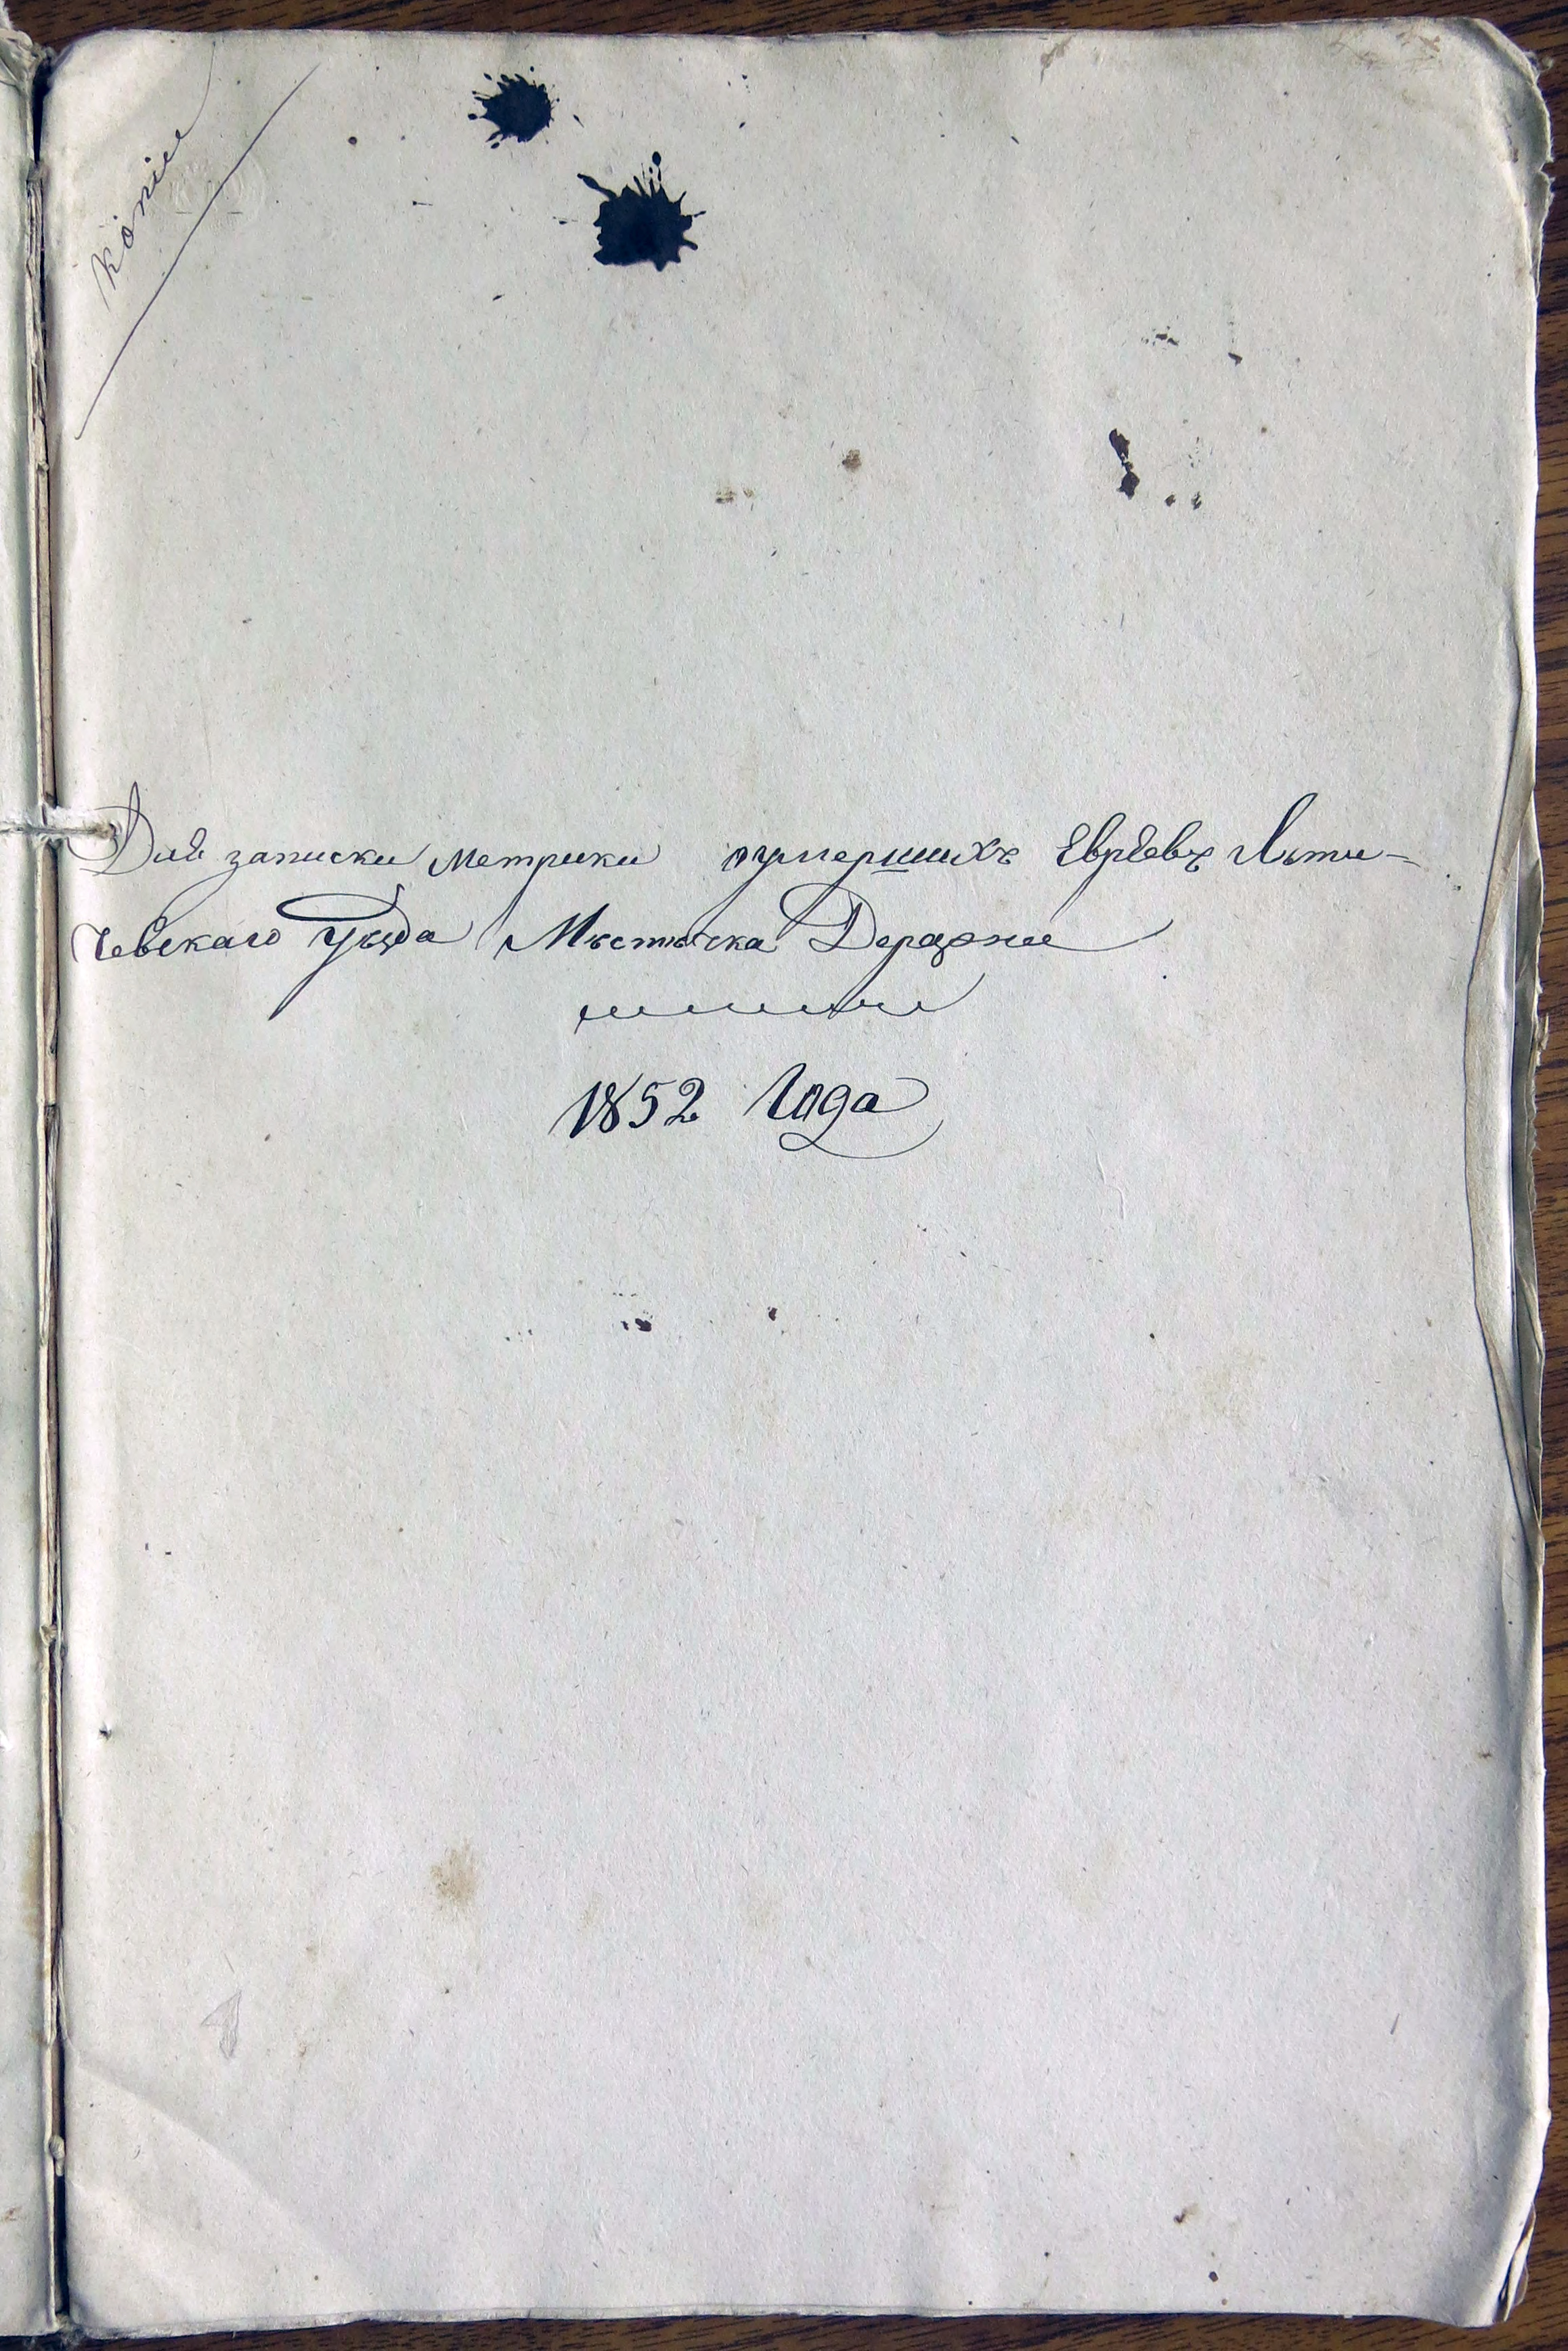 копiя
Для записки метрики умершихъ Евреевъ Лѣти-
чевскаго Уѣзда Мѣстѣчка Деражни
1852 Года